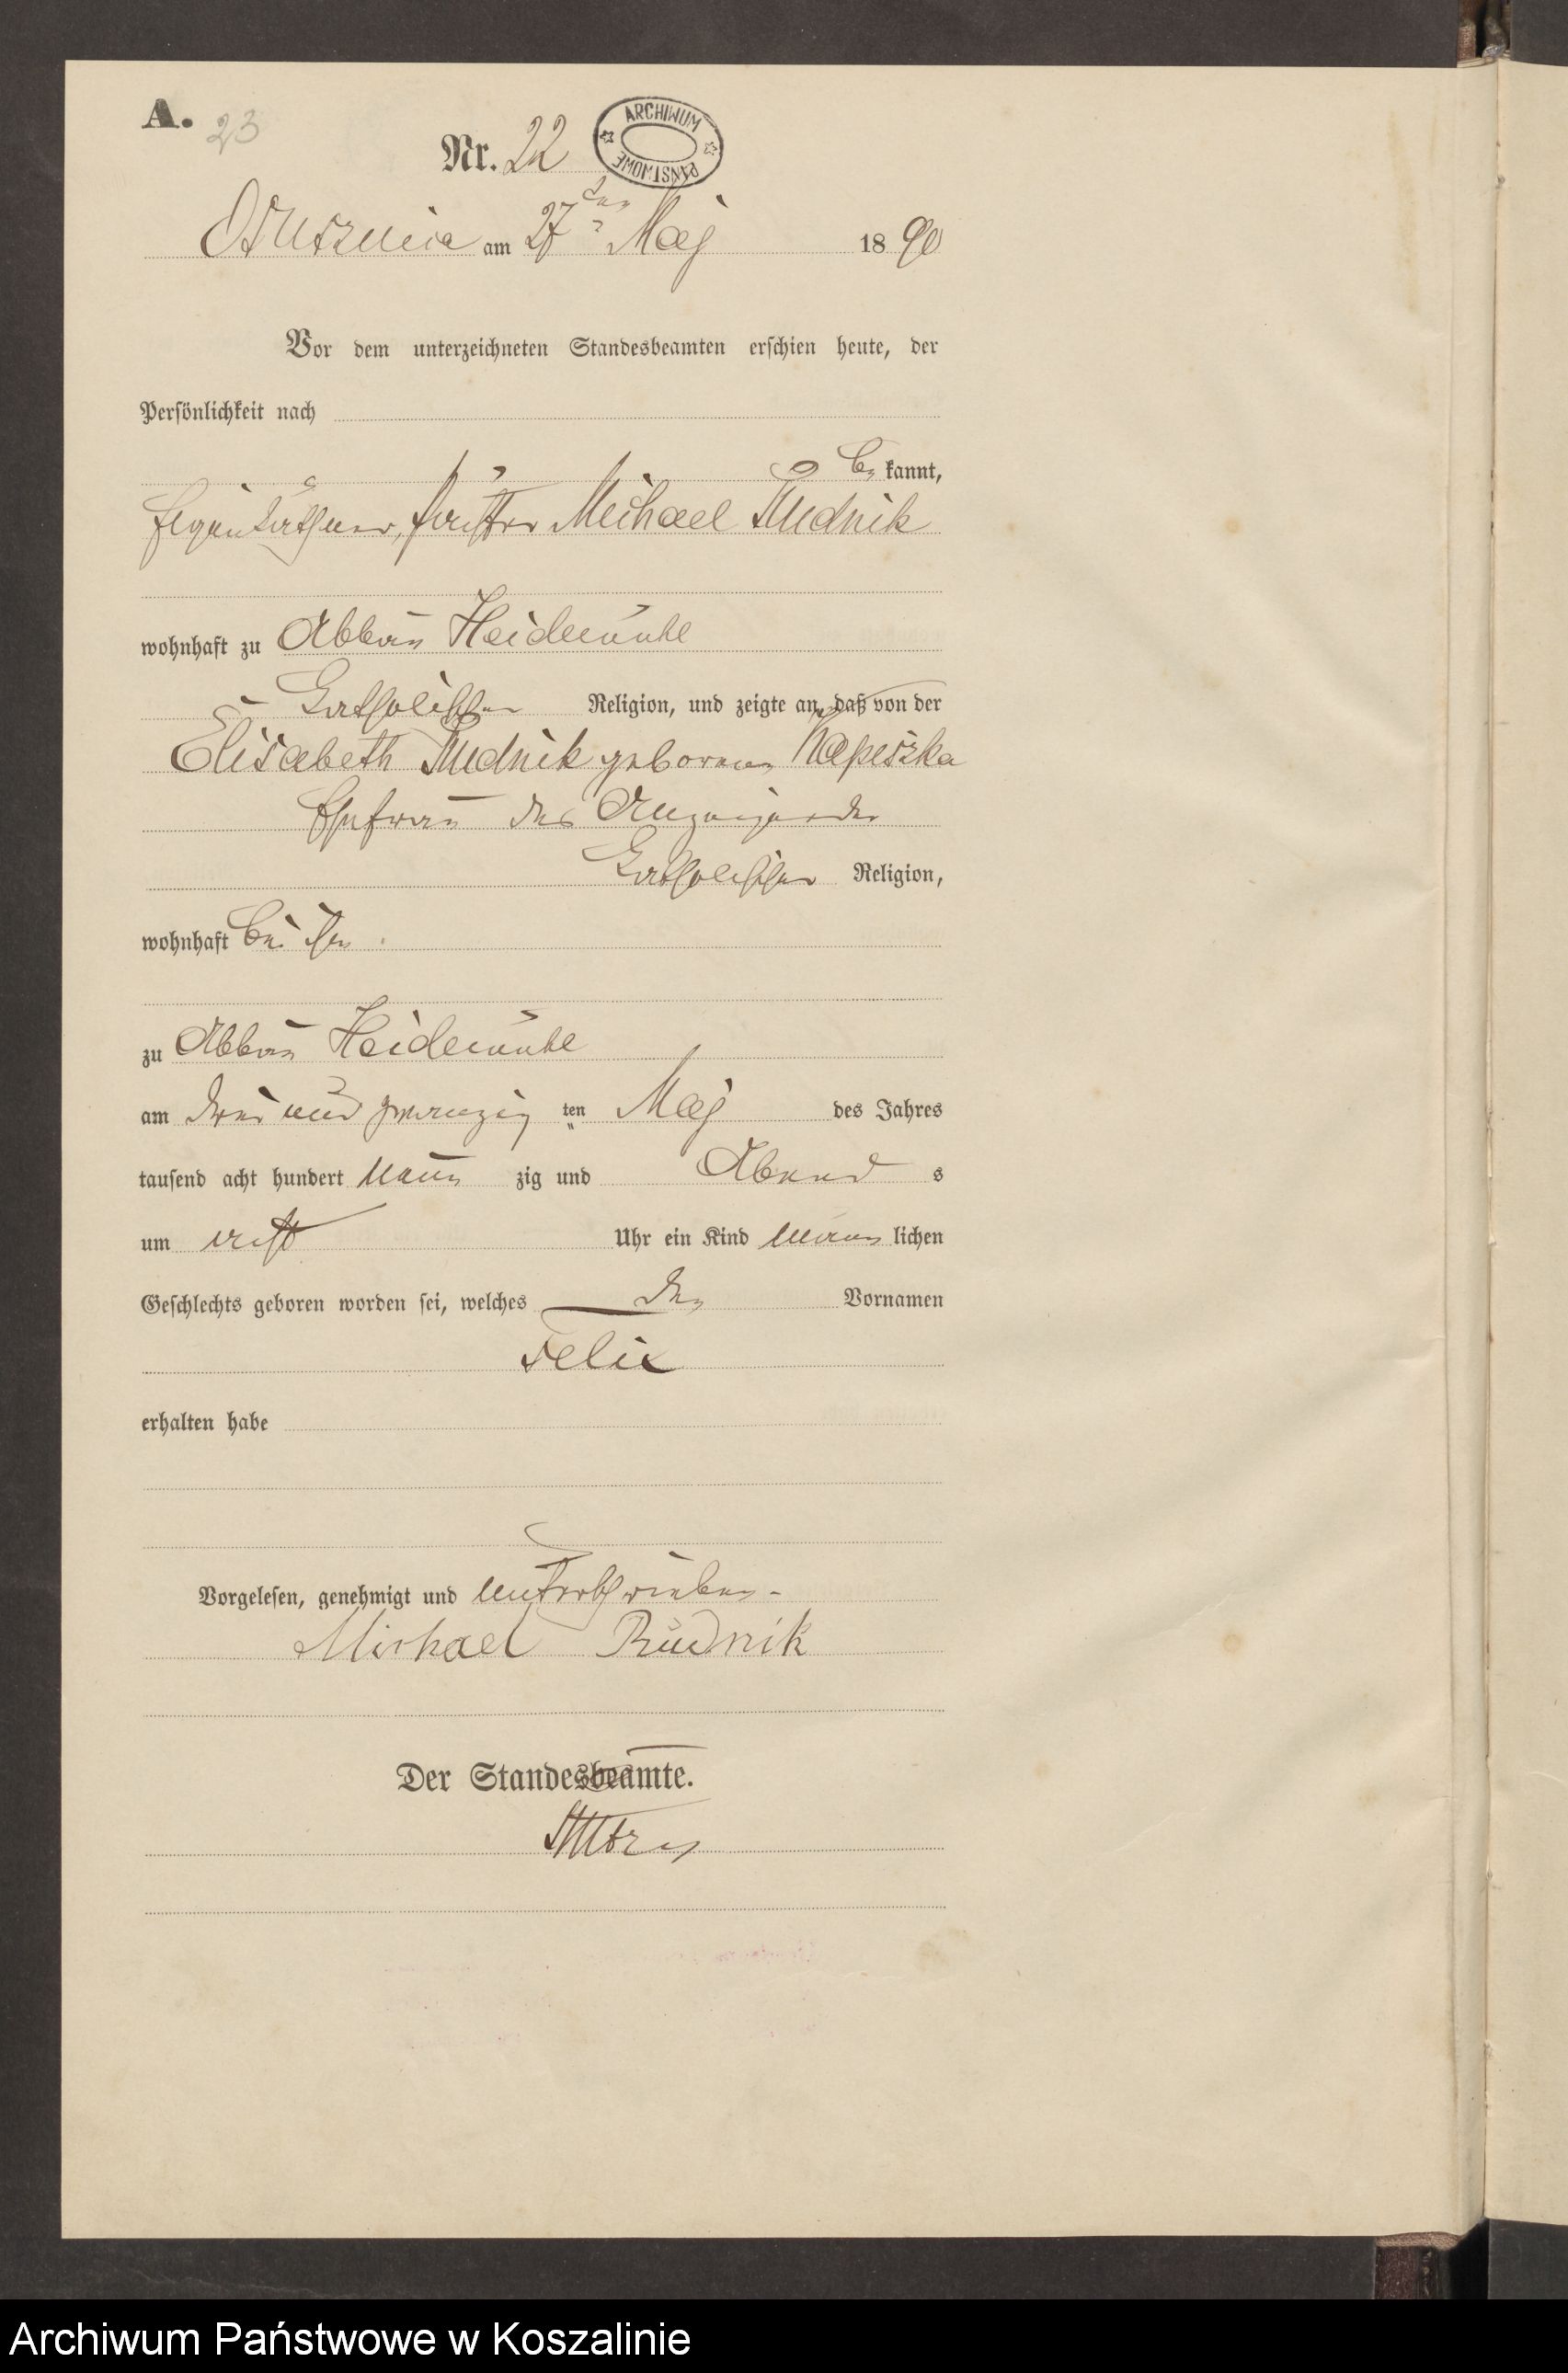 A. 23
Nr. 22
ARCHIWUM PAŃSTWOWE
Ostusznica am 27ten Maj 1890
Vor dem unterzeichneten Standesbeamten erschien heute, der
Persönlichkeit nach
be kannt,
Eigenkäthner, Michael Rudnik
wohnhaft zu Abbau Heidemühl
katholischer Religion, und zeigte an, daß von der
Elisabeth Rudnik geborenen Kapiszka
Ehefrau des Anzeigenden
katholischer Religion,
wohnhaft bei ihm
zu Abbau Heidemühl
am drei und zwanzig ten Maj des Jahres
tausend acht hundert neun zig und Abend s
um acht Uhr ein Kind männ lichen
Geschlechts geboren worden sei, welches den Vornamen
Felix
erhalten habe
Vorgelesen, genehmigt und unterschrieben
Michael Rudnik
Der Standesbeamte.
Archiwum Państwowe w Koszalinie